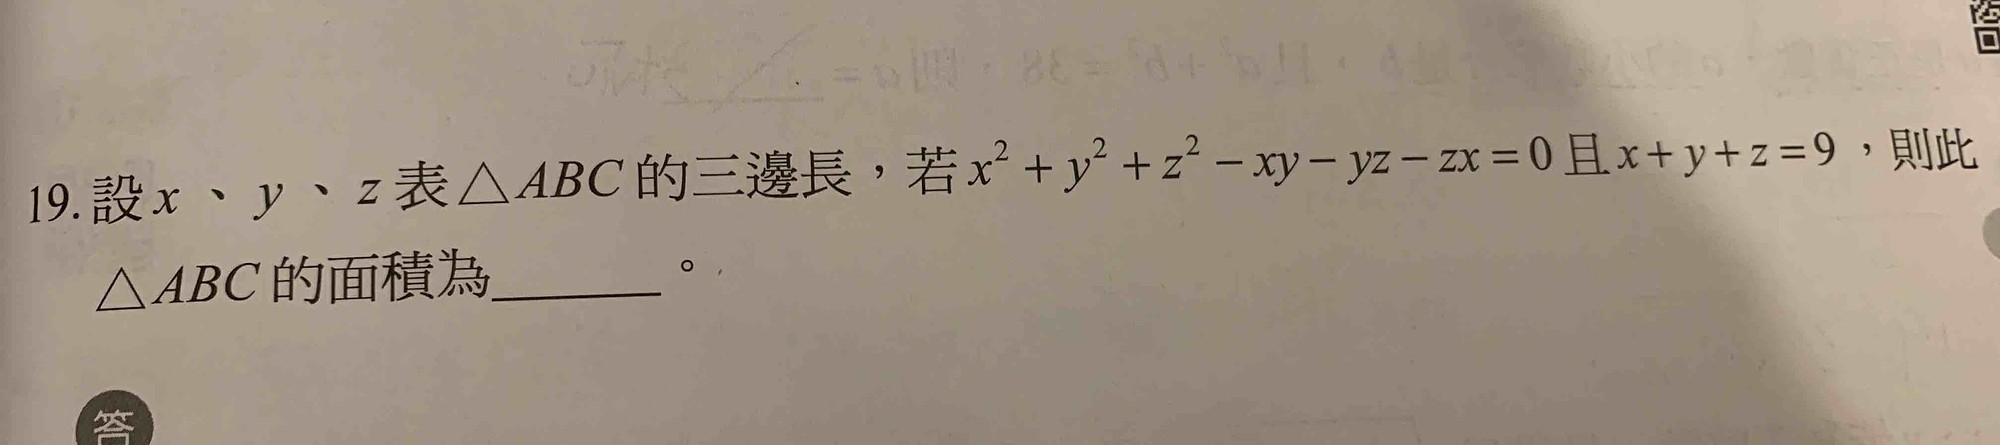 19. 設 x 、 y 、 z 表 △ABC 的三邊長，若 x² + y² + z² − xy − yz − zx = 0 且 x + y + z = 9 ，則此
△ABC 的面積為______。
答